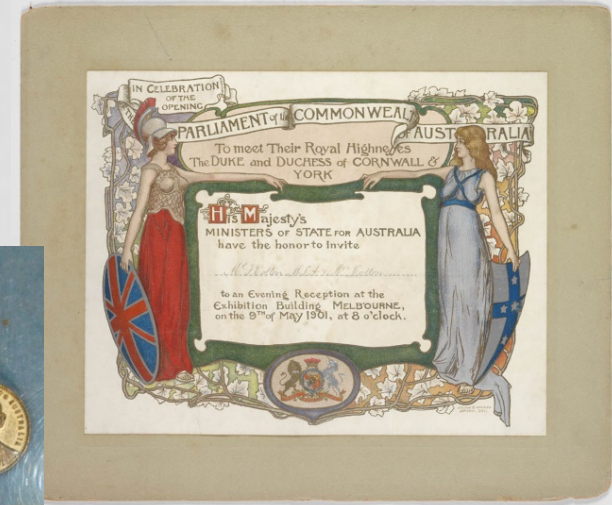 IN CELEBRATION
OF THE
OPENING
PARLIAMENT of the COMMONWEALT
of AUSTRALIA
To meet Their Royal Highnesses
The DUKE and DUCHESS of CORNWALL &
YORK
His Majesty's
MINISTERS OF STATE FOR AUSTRALIA
have the honor to invite
to an Evening Reception at the
Exhibition Building MELBOURNE,
on the 9TH of May 1901, at 8 o'clock.
AUSTRALIA